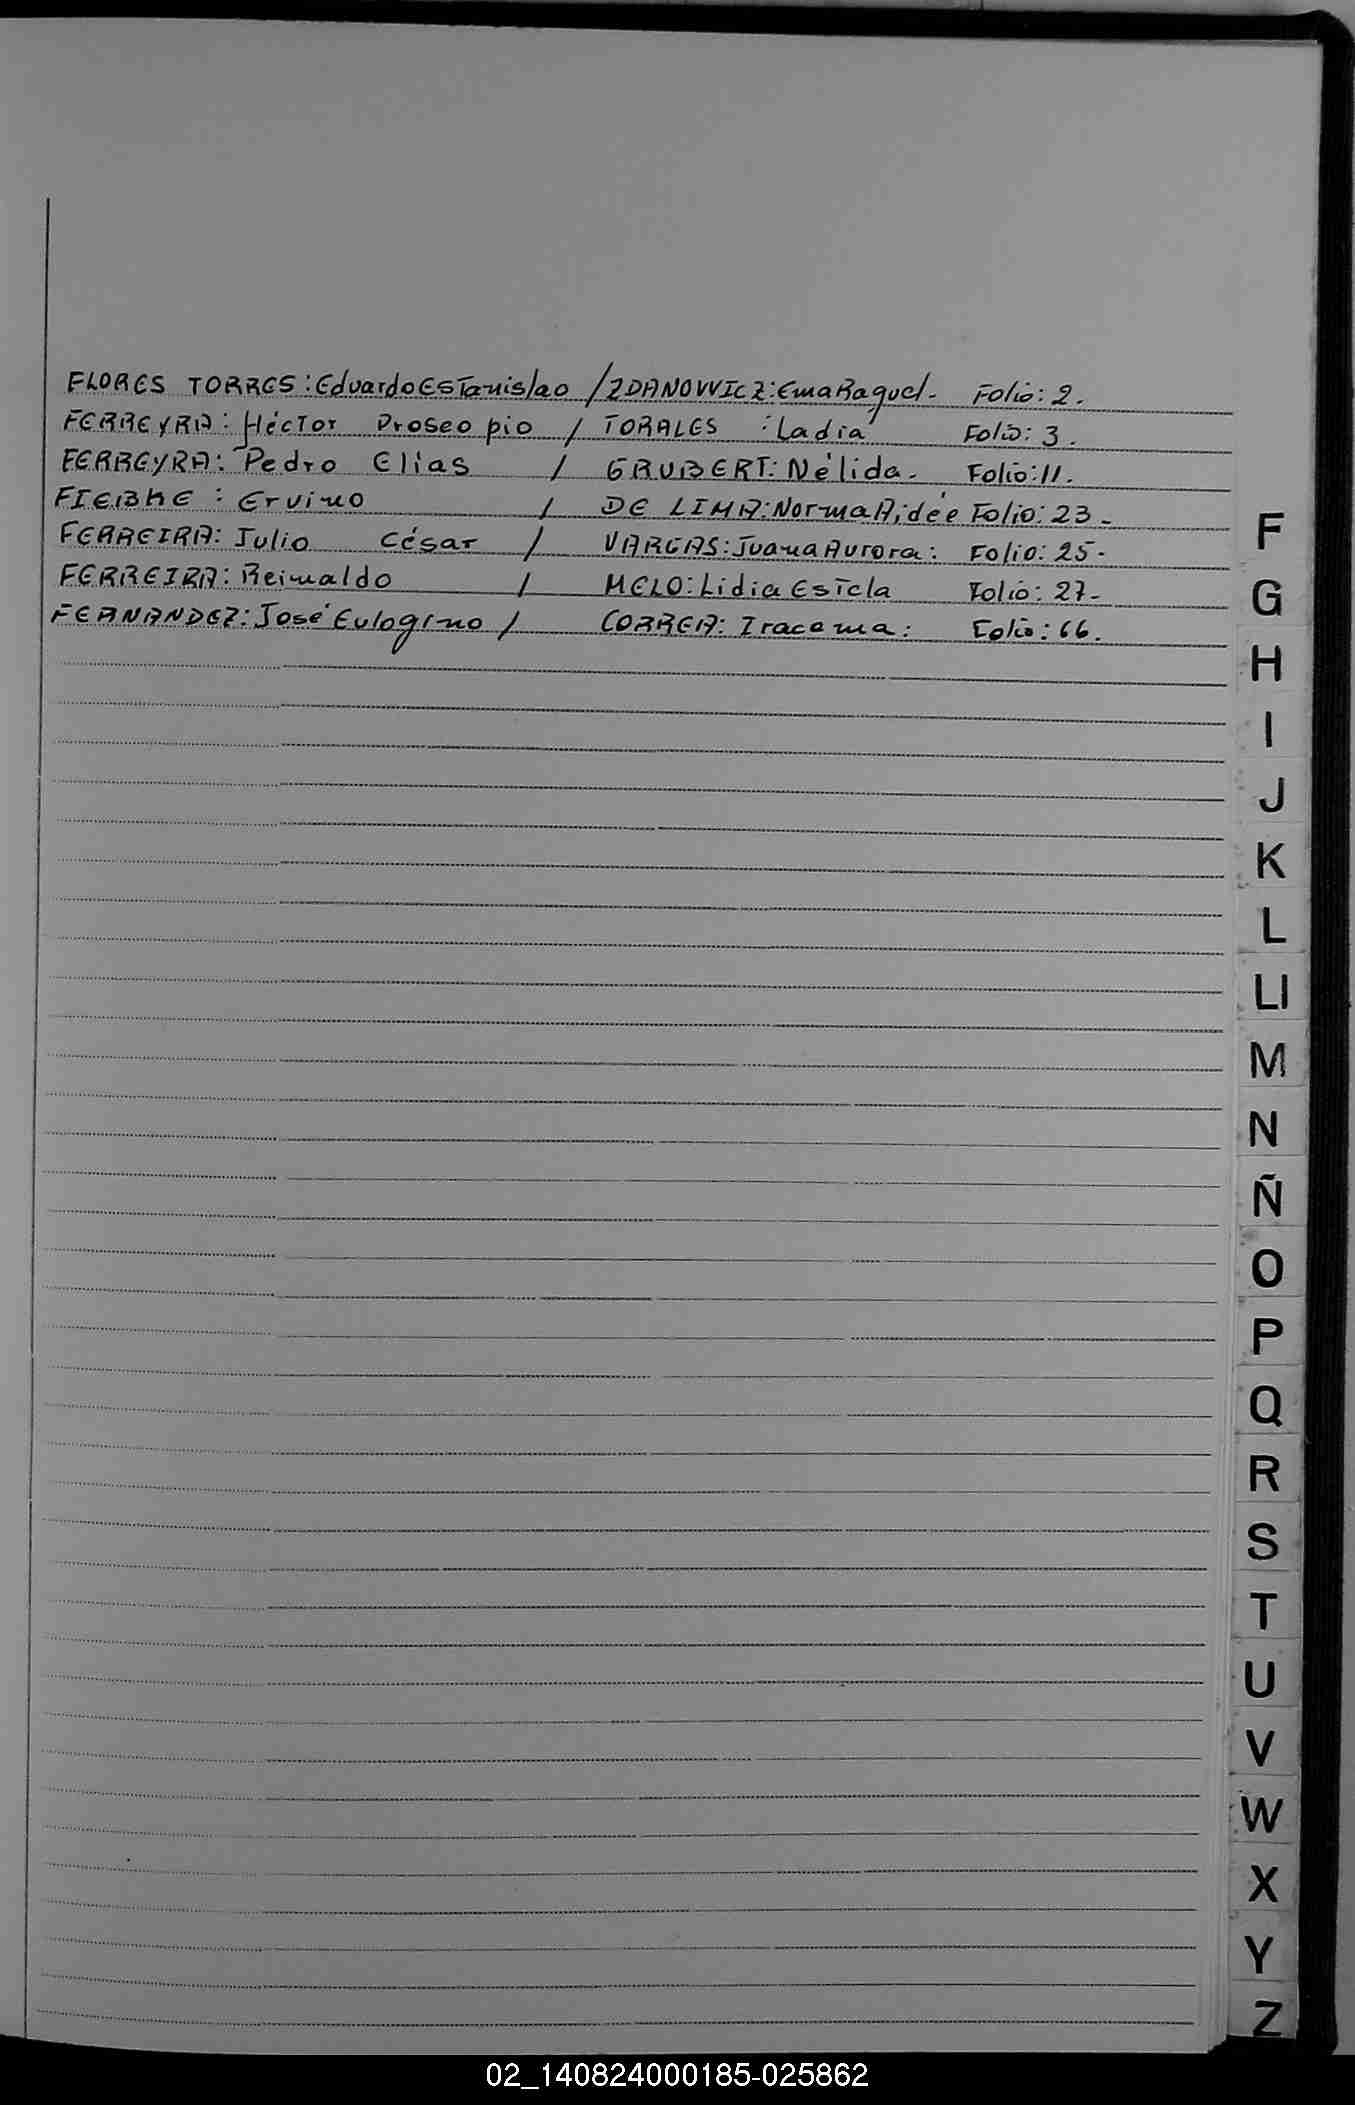 FLORES TORRES: Eduardo Estanislao / ZDANOWICZ: Ema Raquel- Folio: 2.
FERREYRA: Héctor Proseopio / TORALES : Ladia Folio: 3.
FERREYRA: Pedro Elías / GRUBERT: Nélida- Folio: 11.
FIEBKE : Ervino / DE LIMA: Norma Aidée Folio: 23-
FERREIRA: Julio César / VARGAS: Juana Aurora: Folio: 25-
FERREIRA: Reinaldo / MELO: Lidia Estela Folio: 27-
FERNANDEZ: José Eulogino / CORREA: Iracema: Folio: 66.
F
G
H
I
J
K
L
Ll
M
N
Ñ
O
P
Q
R
S
T
U
V
W
X
Y
Z
02_140824000185-025862